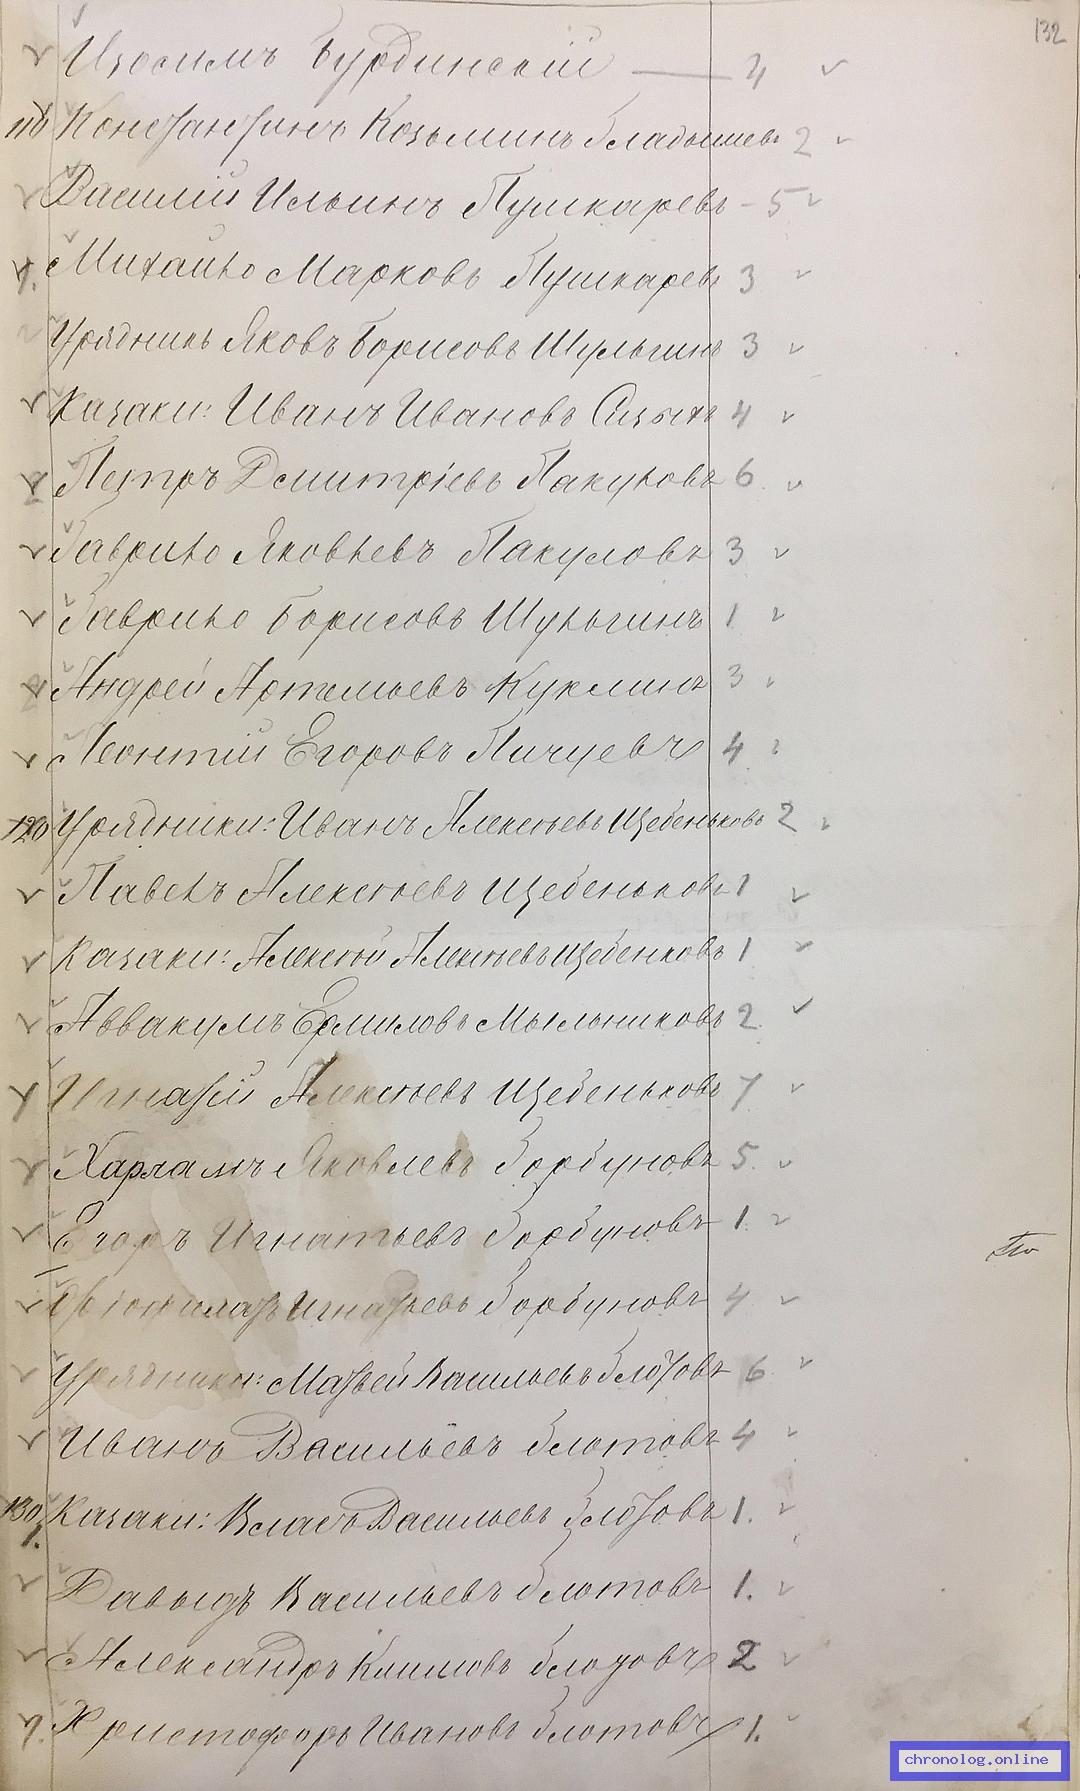 132
Изосимъ Бурдинскій — 4
110 Константинъ Козьминъ Бладышевъ 2
Василій Ильинъ Пушкаревъ - 5
Михайло Марковъ Пушкаревъ 3
Урядникъ Яковъ Борисовъ Шульгинъ 3
Казаки: Иванъ Ивановъ Сизыхъ 4
Петръ Дмитріевъ Пакуловъ 6
Гаврило Яковлевъ Пакуловъ 3
Гаврило Борисовъ Шульгинъ 1
Андрей Артемьевъ Куклинъ 3
Леонтій Егоровъ Пичуевъ 4
120 Урядники: Иванъ Алексѣевъ Щебеньковъ 2
Павелъ Алексѣевъ Щебеньковъ 1
Казаки: Алексѣй Алексѣевъ Щебенковъ 1
Аввакумъ Ермиловъ Мыльниковъ 2
Игнатій Алексѣевъ Щебеньковъ 7
Харламъ Яковлевъ Горбуновъ 5
Егоръ Игнатьевъ Горбуновъ 1
Игнатьевъ Горбуновъ 4
Урядники: Матвей Васильевъ Блотовъ 6
Иванъ Васильевъ Блотовъ 4
130 Казаки: Власъ Васильевъ Блотовъ 1.
1.
Давыдъ Васильевъ Блотовъ 1.
Александръ Климовъ Блотовъ 2
Христофоръ Ивановъ Блотовъ 1.
chronolog.online